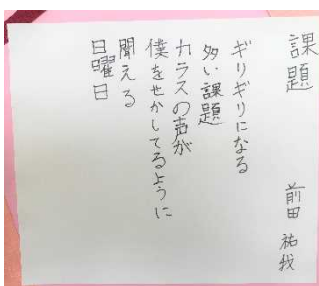 課題
前田 祐我
ギリギリになる
多い課題
カラスの声が
僕をせかしてるように
聞える
日曜日